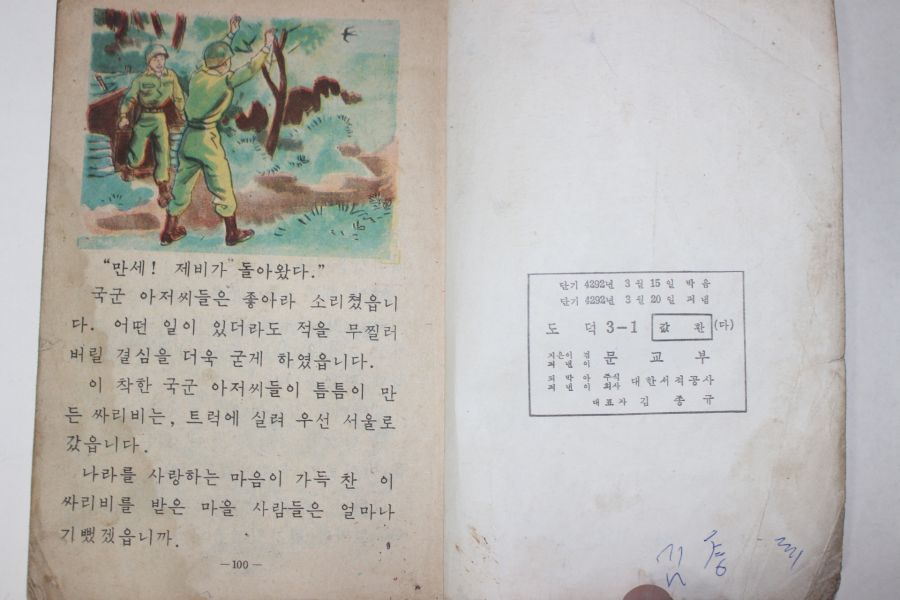 “만세! 제비가 돌아왔다.”
국군 아저씨들은 좋아라 소리쳤읍니
다. 어떤 일이 있더라도 적을 무찔러
버릴 결심을 더욱 굳게 하였읍니다.
이 착한 국군 아저씨들이 틈틈이 만
든 싸리비는, 트럭에 실려 우선 서울로
갔읍니다.
나라를 사랑하는 마음이 가득 찬 이
싸리비를 받은 마을 사람들은 얼마나
기뻤겠읍니까.
9
—100—
단기 4292년 3월 15일 박음
단기 4292년 3월 20일 펴냄
도 덕 3-1 값 환 (다)
지은이 겸 펴낸이 문 교 부
박아 펴낸이 주식 회사 대한서적공사
대표자 김 종 규
김